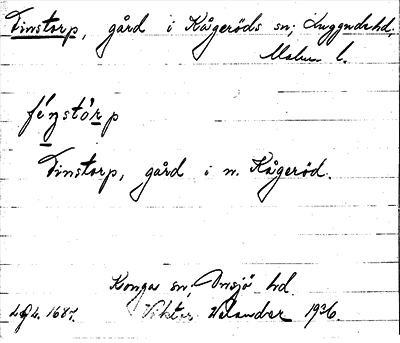 Finstorp, gård i Kågeröds sn, Luggude hd,
Malm. l.
fé̱nstó̱rp
Finstorp, gård i n. Kågeröd.
Konga sn, Onsjö hd.
Viktor Velander 1936.